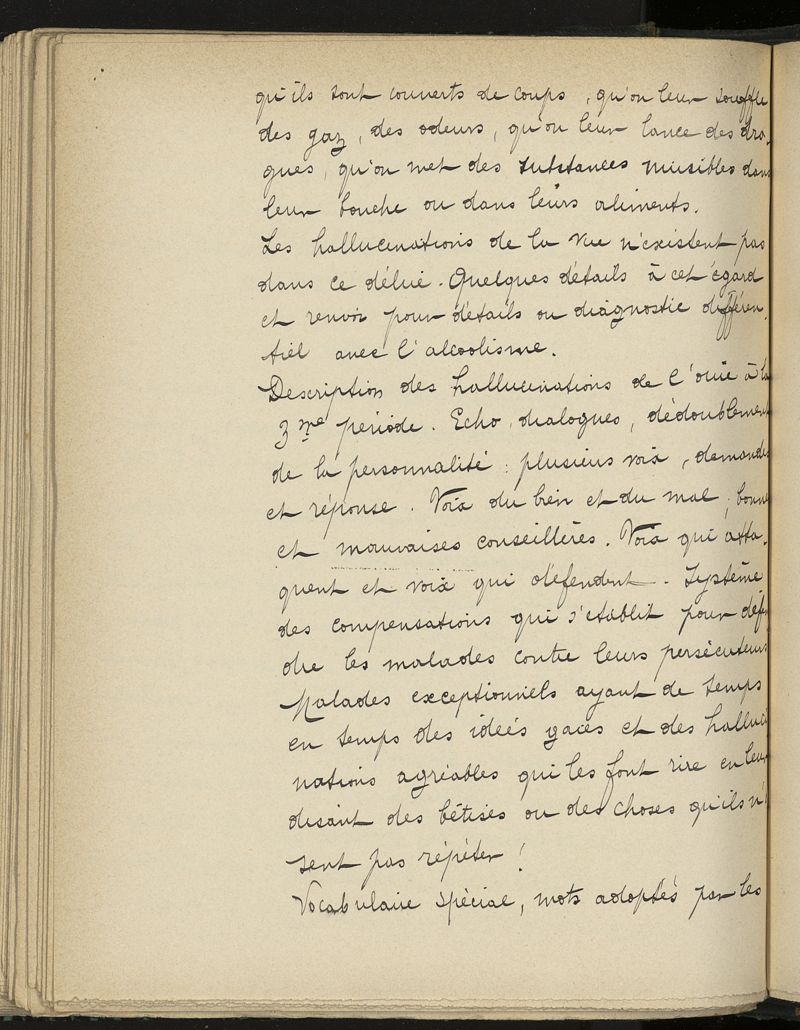 qu'ils sont couverts de coups, qu'on leur souffle
des gaz, des odeurs, qu'on leur lance des dro-
gues, qu'on met des substances nuisibles dans
leur bouche ou dans leurs aliments.
Les hallucinations de la vue n'existent pas
dans ce délire. Quelques détails à cet égard
et renvoi pour détails ou diagnostic différen-
tiel avec l'alcoolisme.
Description des hallucinations de l'ouïe à la
3me période. Echo, dialogues, dédoublement
de la personnalité : plusieurs voix, demandes
et réponse. Voix du bien et du mal ; bonnes
et mauvaises conseillères. Voix qui atta-
quent et voix qui défendent. Système
des compensations qui s'établit pour défen
dre les malades contre leurs persécuteurs
Malades exceptionnels ayant de temps
en temps des idées gaies et des halluci
nations agréables qui les font rire en leur
disant des bêtises ou des choses qu'ils n'
sent pas répéter !
Vocabulaire spécial, mots adoptés par les